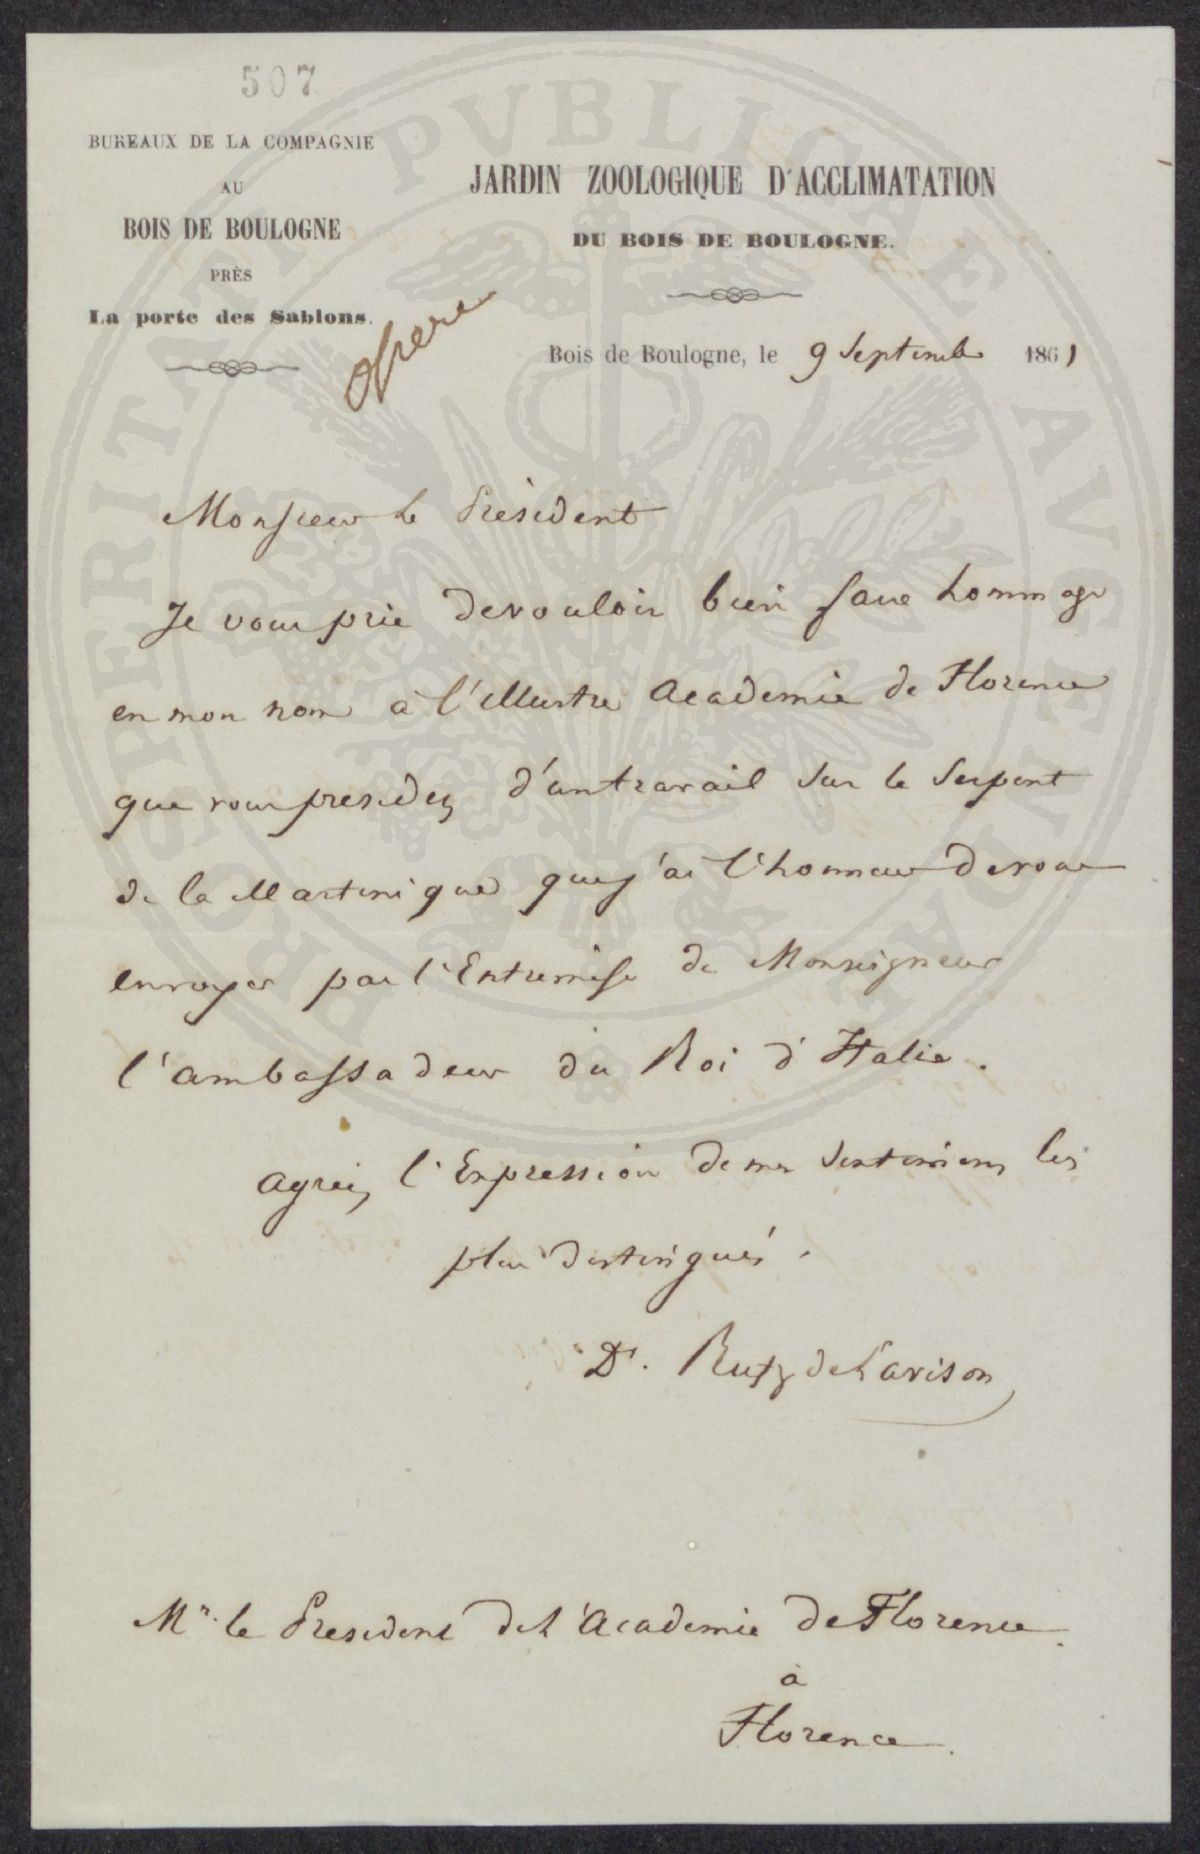 507
BUREAUX DE LA COMPAGNIE
AU
BOIS DE BOULOGNE
PRÈS
La porte des Sablons.
JARDIN ZOOLOGIQUE D'ACCLIMATATION
DU BOIS DE BOULOGNE.
Bois de Boulogne, le 9 Septembre 1861
Monsieur le Président
Je vous prie de vouloir bien faire hommage
en mon nom à l'illustre Academie de Florence
que vous presidez d'un travail sur le Serpent
de la Martinique que j'ai l'honneur de vous
envoyer par l'Entremise de Monseigneur
l'ambassadeur du Roi d'Italie.
agréez l'Expression de mes sentimens les
plus distingués.
Dr. Rufz de Lavison
Mr. le President de l'Academie de Florence.
à
Florence.
PROSPERITATI PVBLICAE AVGENDAE